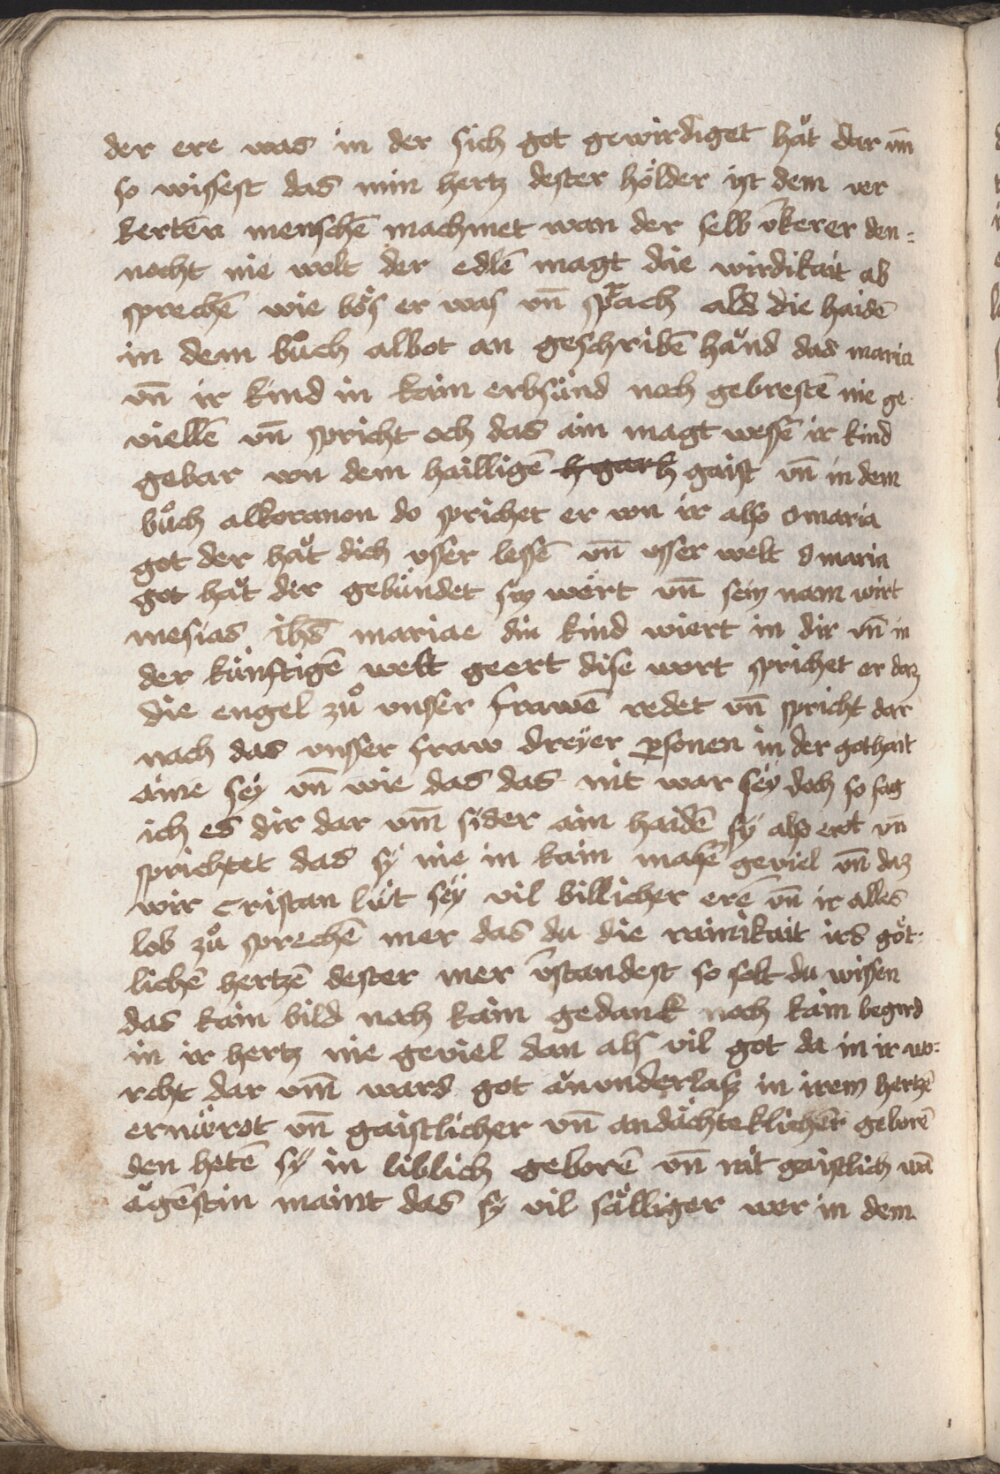 der ere was in der sich got gewirdiget haͤt dar um̄
so wissest das min hertz dester hoͤlder ist dem ver
kerten menschē machmet wan der selb v̄kerer den=
nocht nie wolt der edlē magt die wirdikait ab
sprechē wie boͤs er was vn̄ sprach als die haidē
in dem buͦch albot an geschribē haͤnd das maria
vn̄ ir kind in kain erbsuͤnd noch gebrestē nie ge
viellē vn̄ spricht och das ain magt wessē ir kind
gebar von dem hailligē gaist vn̄ in dem
buͦch alkoranon do sprichet er von ir also o maria
got der haͤt dich vsser lessē vn̄ vsser welt o maria
got haͤt dir gebuͤndet sin woͤrt vn̄ sein nam wirt
mesias ihs̄ mariae din kind wiert in dir vn̄ in
der kuͤnftigē welt geert dise wort sprichet er daz
die engel zuͦ vnser frawē redet vn̄ spricht dar
nach das vnsser fraw dreyer psonen in der gothait
aine sey vn̄ wie das das nit war sey doch so sag
ich es dir dar vm̄ sider ain haidē sy also eret vn̄
sprichtet das sy nie in kain masē geviel vn̄ daz
wir cristan luͤt sey vil billicher erē vn̄ ir alles
lob zuͦ sprechē mer das du die rainikait irs goͤt=
lichē hertzē dester mer v̄standest so solt du wissen
das kain bild noch kain gedank noch kain begird
in ir hertz nie geviel dan als vil got da in ir wo=
rcht dar vm̄ ward got aͤn vnderlasz in irem hertzē
ernuͤwrot vn̄ gaistlicher vn̄ andaͤchteklichēr geborē
den hetē sy in liblich geborē vn̄ nit gaistlich wā
aͤgēstin maint das sy vil saͤlliger wer in dem